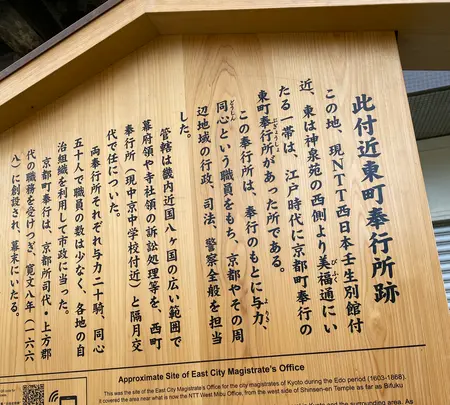 此付近東町奉行所跡
この地、現NTT西日本壬生別館付
近、東は神泉苑の西側より美福通にい
たる一帯は、江戸時代に京都町奉行の
東町奉行所があった所である。
この奉行所は、奉行のもとに与力、
同心という職員をもち、京都やその周
辺地域の行政、司法、警察全般を担当
した。
管轄は畿内近国八ヶ国の広い範囲で
幕府領や寺社領の訴訟処理等を、西町
奉行所（現中京中学校付近）と隔月交
代で任についた。
両奉行所それぞれ与力二十騎、同心
五十人で職員の数は少なく、各地の自
治組織を利用して市政に当った。
京都町奉行は、京都所司代・上方郡
代の職務を受けつぎ、寛文八年（一六六
八）に創設され、幕末にいたる。
Approximate Site of East City Magistrate's Office
This was the site of the East City Magistrate's Office for the city magistrates of Kyoto during the Edo period (1603-1868).
It covered the area near what is now the NTT West Mibu Office, from the west side of Shinsen-en Temple as far as Bifuku